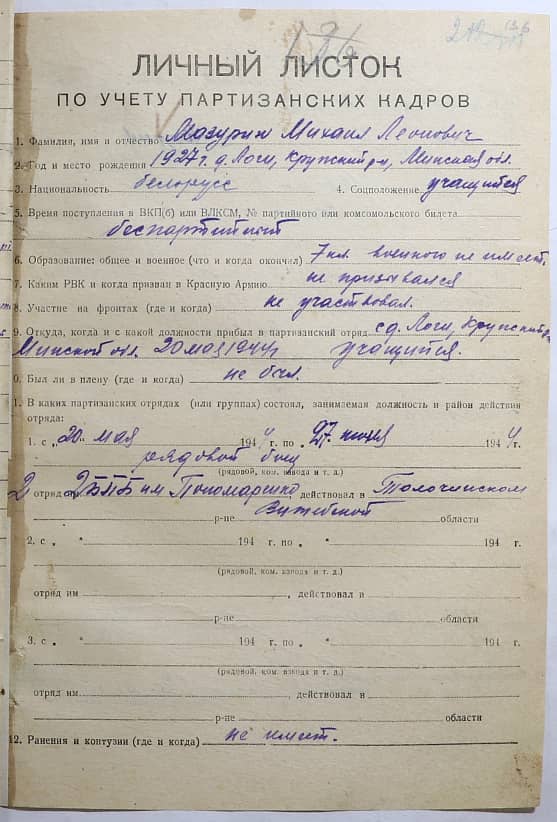 136
ЛИЧНЫЙ ЛИСТОК
ПО УЧЕТУ ПАРТИЗАНСКИХ КАДРОВ
1. Фамилия, имя и отчество Мазурин Михаил Леонович
2. Год и место рождения 1927 г. д. Логи, Крупский рн, Минская обл.
3. Национальность белорусс 4. Соцположение учащийся
5. Время поступления в ВКП(б) или ВЛКСМ, № партийного или комсомольского билета
беспартийный
6. Образование: общее и военное (что и когда окончил) 7 кл. военного не имеет.
7. Каким РВК и когда призван в Красную Армию не призывался
8. Участие на фронтах (где и когда) не участвовал.
9. Откуда, когда и с какой должности прибыл в партизанский отряд с д. Логи, Крупский р
Минской обл. 20 мая 1944 г учащийся.
0. Был ли в плену (где и когда) не был.
1. В каких партизанских отрядах (или группах) состоял, занимаемая должность и район действия
отряда:
1. с „20. мая 1944 г. по „27. июня 1944 г.
рядовой боец
(рядовой, ком. взвода и т. д.)
2 отряд им Пономаренко, действовал в Толочинском
р-не Витебской области
2. с „ " 194 г. по „ " 194 г.
(рядовой, ком. взвода и т. д.)
отряд им , действовал в
р-не области
3. с „ " 194 г. по „ " 194 г.
(рядовой, ком. взвода и т. д.)
отряд им , действовал в
р-не области
12. Ранения и контузии (где и когда) не имеет.